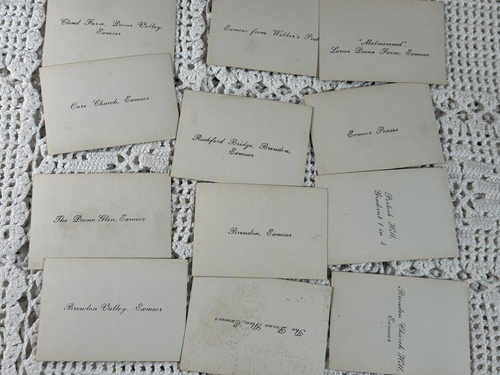 Cloud Farm, Doone Valley,
Exmoor
Exmoor from Webber's Post
"Malmsmead",
Lorna Doone Farm, Exmoor
Oare Church, Exmoor
Rockford Bridge, Brendon,
Exmoor
Exmoor Ponies
The Doone Glen, Exmoor
Brendon, Exmoor
Porlock Hill,
Gradient 1 in 4
Brendon Valley, Exmoor
The Doone Glen, Exmoor
Brendon Church Hill
Exmoor